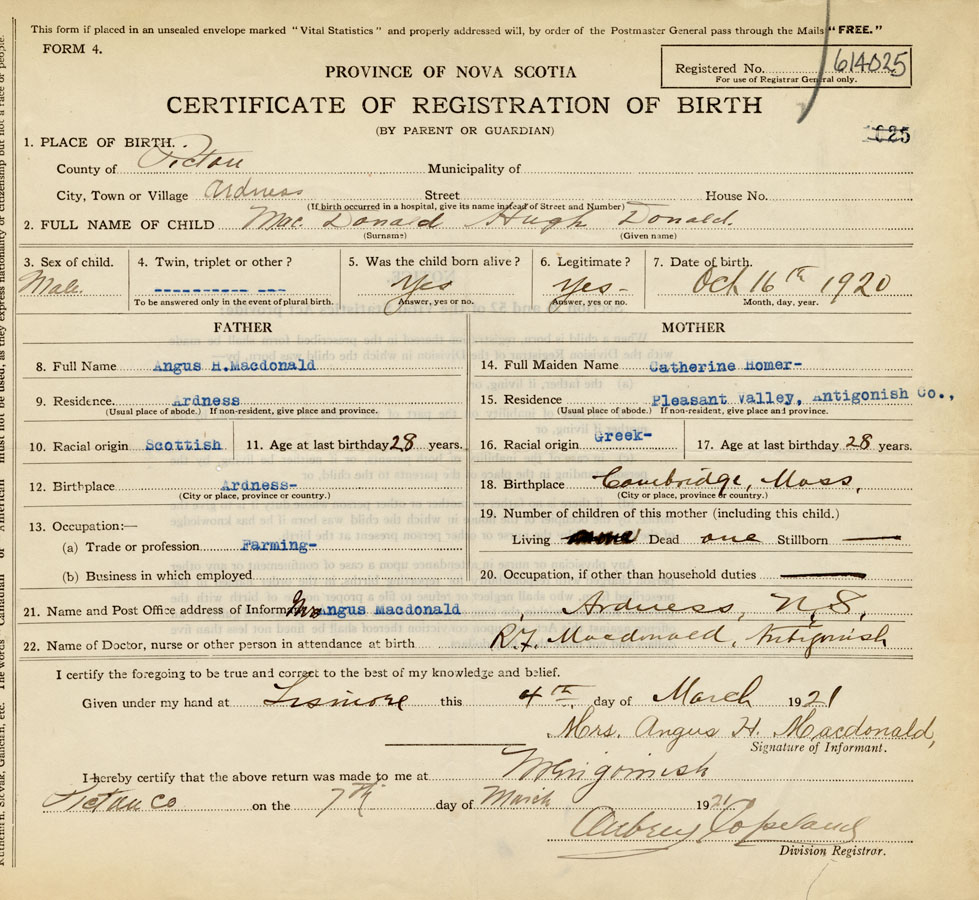 This form if placed in an unsealed envelope marked "Vital Statistics" and properly addressed will, by order of the Postmaster General pass through the Mails "FREE."
FORM 4.
PROVINCE OF NOVA SCOTIA
Registered No. 614025
For use of Registrar General only.
CERTIFICATE OF REGISTRATION OF BIRTH
(BY PARENT OR GUARDIAN)
1025
1. PLACE OF BIRTH.
County of Pictou Municipality of
City, Town or Village Ardness Street House No.
(If birth occurred in a hospital, give its name instead of Street and Number)
2. FULL NAME OF CHILD Mac Donald Hugh Donald.
(Surname) (Given name)
3. Sex of child. 4. Twin, triplet or other? 5. Was the child born alive? 6. Legitimate? 7. Date of birth.
Male. Yes Yes- Oct 16th 1920
To be answered only in the event of plural birth. Answer, yes or no. Answer, yes or no. Month, day, year.
FATHER
8. Full Name Angus H.Macdonald
9. Residence. Ardness
(Usual place of abode.) If non-resident, give place and province.
10. Racial origin Scottish 11. Age at last birthday 28 years.
12. Birthplace Ardness-
(City or place, province or country.)
13. Occupation:—
(a) Trade or profession Farming-
(b) Business in which employed
MOTHER
14. Full Maiden Name Catherine Homer-
15. Residence Pleasant Valley, Antigonish Co.,
(Usual place of abode.) If non-resident, give place and province.
16. Racial origin Greek- 17. Age at last birthday 28 years.
18. Birthplace Cambridge, Mass,
(City or place, province or country.)
19. Number of children of this mother (including this child.)
Living Dead one Stillborn
20. Occupation, if other than household duties
21. Name and Post Office address of Informant Mrs Angus Macdonald, Ardness, N.S,
22. Name of Doctor, nurse or other person in attendance at birth R.F. Macdonald, Antigonish
I certify the foregoing to be true and correct to the best of my knowledge and belief.
Given under my hand at Lismore this 4th day of March 1921
Mrs. Angus H. Macdonald,
Signature of Informant.
I hereby certify that the above return was made to me at Merigomish
Pictou Co on the 7th day of March 1921
Aubrey Copeland
Division Registrar.